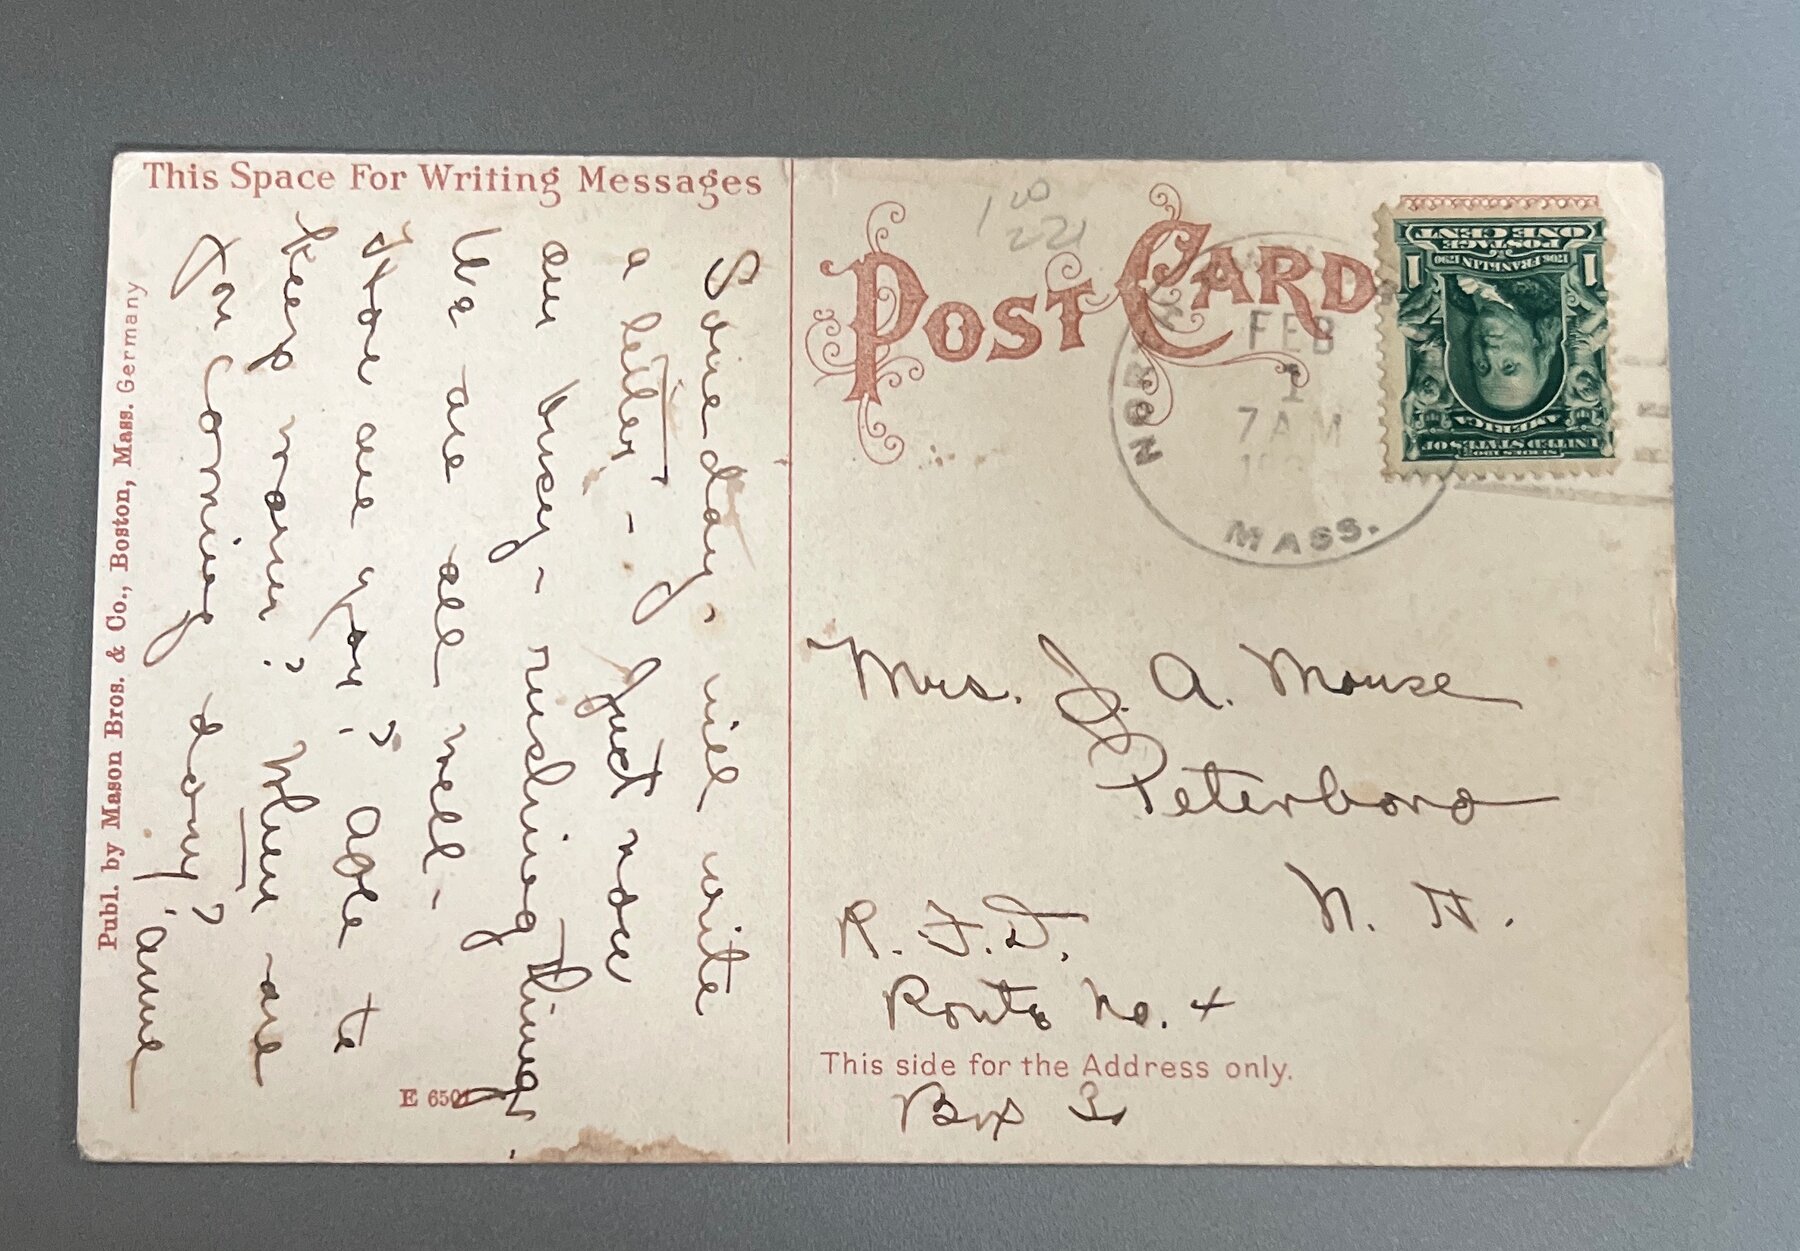 This Space For Writing Messages
Some day, will write
a letter - Just now
am busy - rushing things
We are all well -
How are you? Able to
keep warm? When are
you coming down?
Anne
Publ. by Mason Bros. & Co., Boston, Mass. Germany
E 6501
POST CARD
FEB
1
7 AM
MASS.
1
1
POSTAGE
ONE CENT
1706 FRANKLIN 1790
SERIES 1902
UNITED STATES OF
AMERICA
Mrs. J. A. Mouse
Peterboro
N. H.
R. F. D.
Route No. 4
This side for the Address only.
Box 3